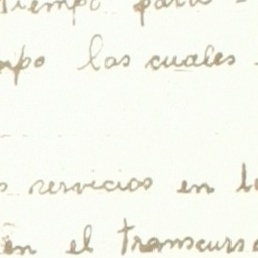 tiempo para
mpo las cuales
s servicios en l
en el transcurso